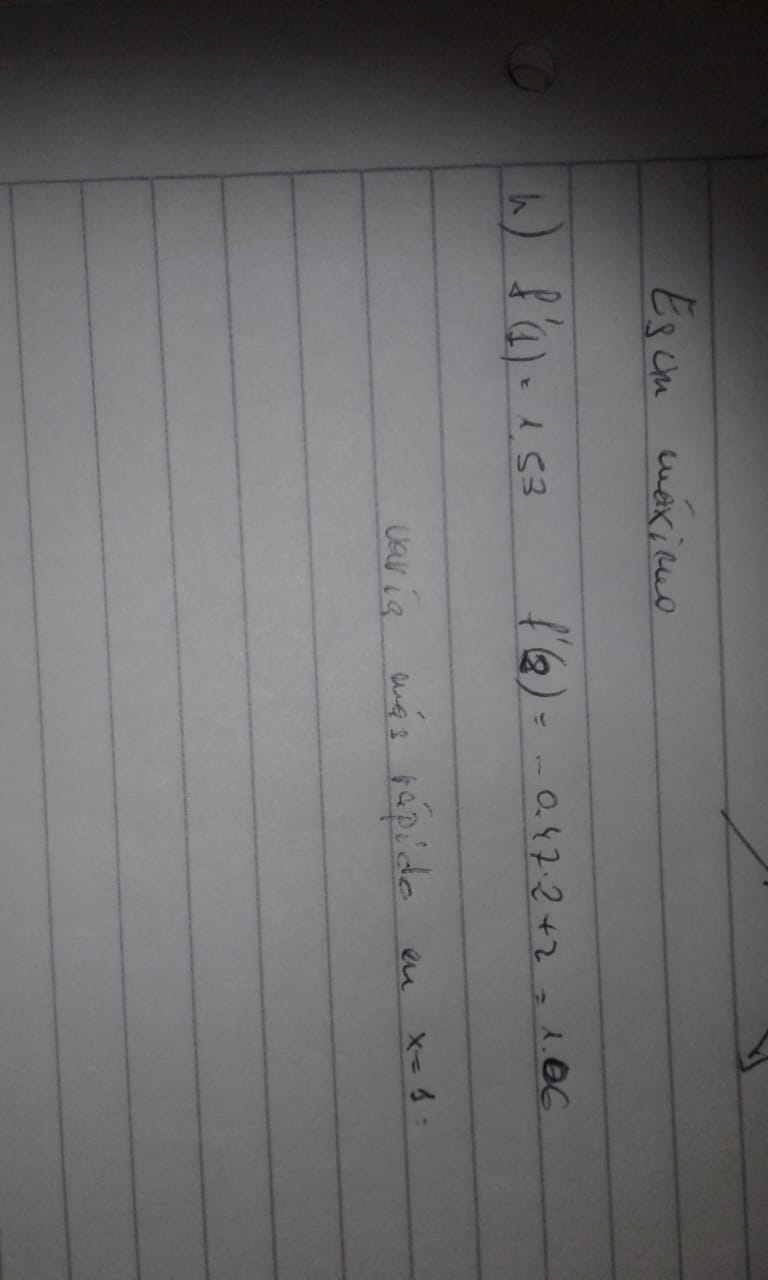 Es un máximo
h) f'(1) = 1.53 f'(2) = -0.47·2+2 = 1.06
varía más rápido en x=1.